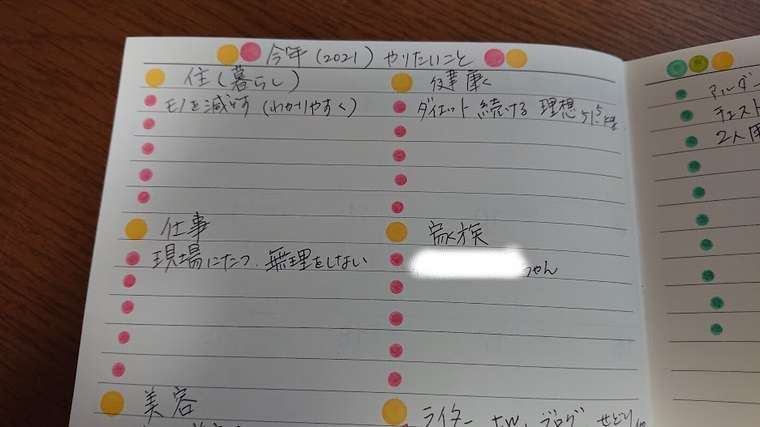 今年(2021) やりたいこと
住(暮らし)
モノを減らす(わかりやすく)
仕事
現場にたつ、無理をしない
美容
健康
ダイエット 続ける 理想 51.5kg
家族
ちゃん
ライター tw. ブログ せどり
アルダー
チェスト
2人用